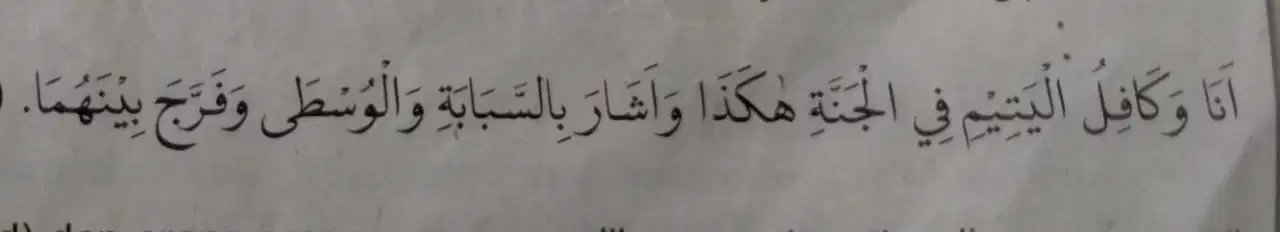 اَنَا وَكَافِلُ الْيَتِيْمِ فِي الْجَنَّةِ هٰكَذَا وَاَشَارَ بِالسَّبَابَةِ وَالْوُسْطَى وَفَرَّجَ بِيْنَهُمَا.